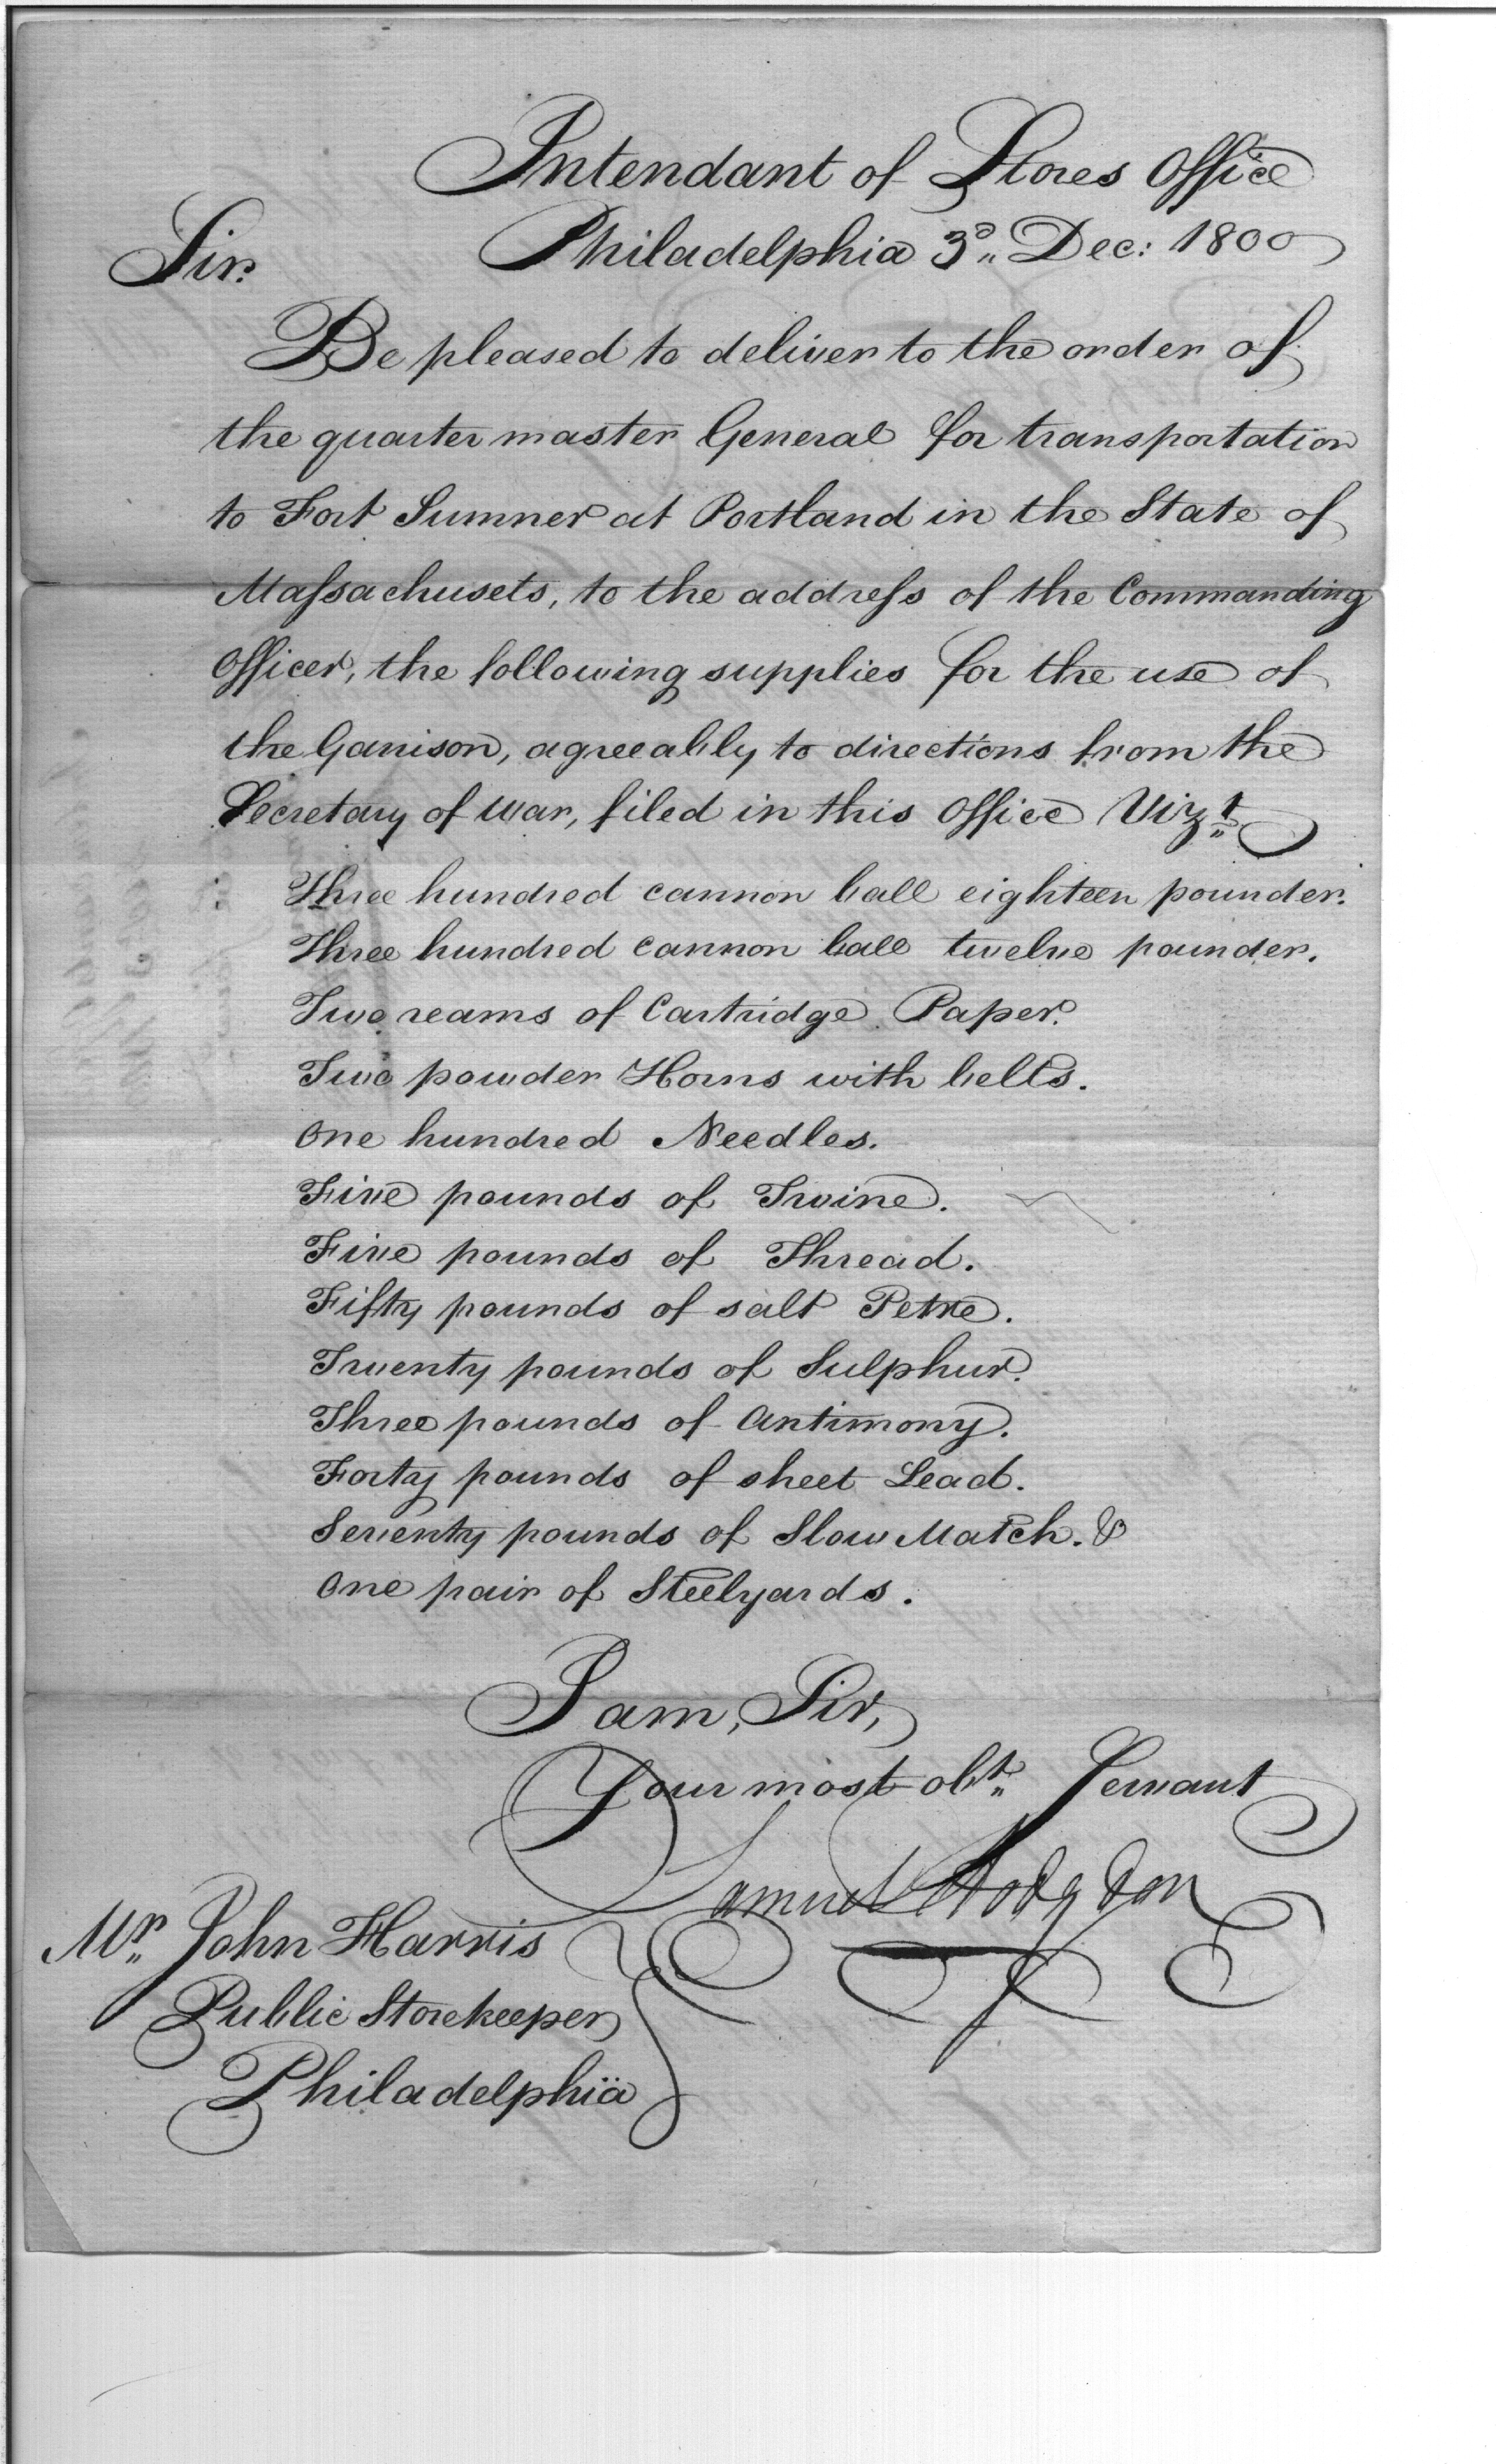 Intendant of Stores Office
Philadelphia 3d Dec: 1800
Sir.
Be pleased to deliver to the order of
the quarter master General for transportation
to Fort Sumner at Portland in the State of
Massachusets, to the address of the Commanding
Officer, the following supplies for the use of
the Garrison, agreeably to directions from the
Secretary of War, filed in this Office Vizt
Three hundred cannon ball eighteen pounder.
Three hundred cannon ball twelve pounder.
Two reams of Cartridge Paper.
Two powder Horns with belts.
One hundred Needles.
Five pounds of Twine.
Five pounds of Thread.
Fifty pounds of salt Petre.
Twenty pounds of Sulphur.
Three pounds of Antimony.
Forty pounds of sheet Lead.
Seventy pounds of Slow Match. &
One pair of Steelyards.
I am, Sir,
Your most obt Servant
Samuel Hodgdon
Mr John Harris
Public Storekeeper
Philadelphia